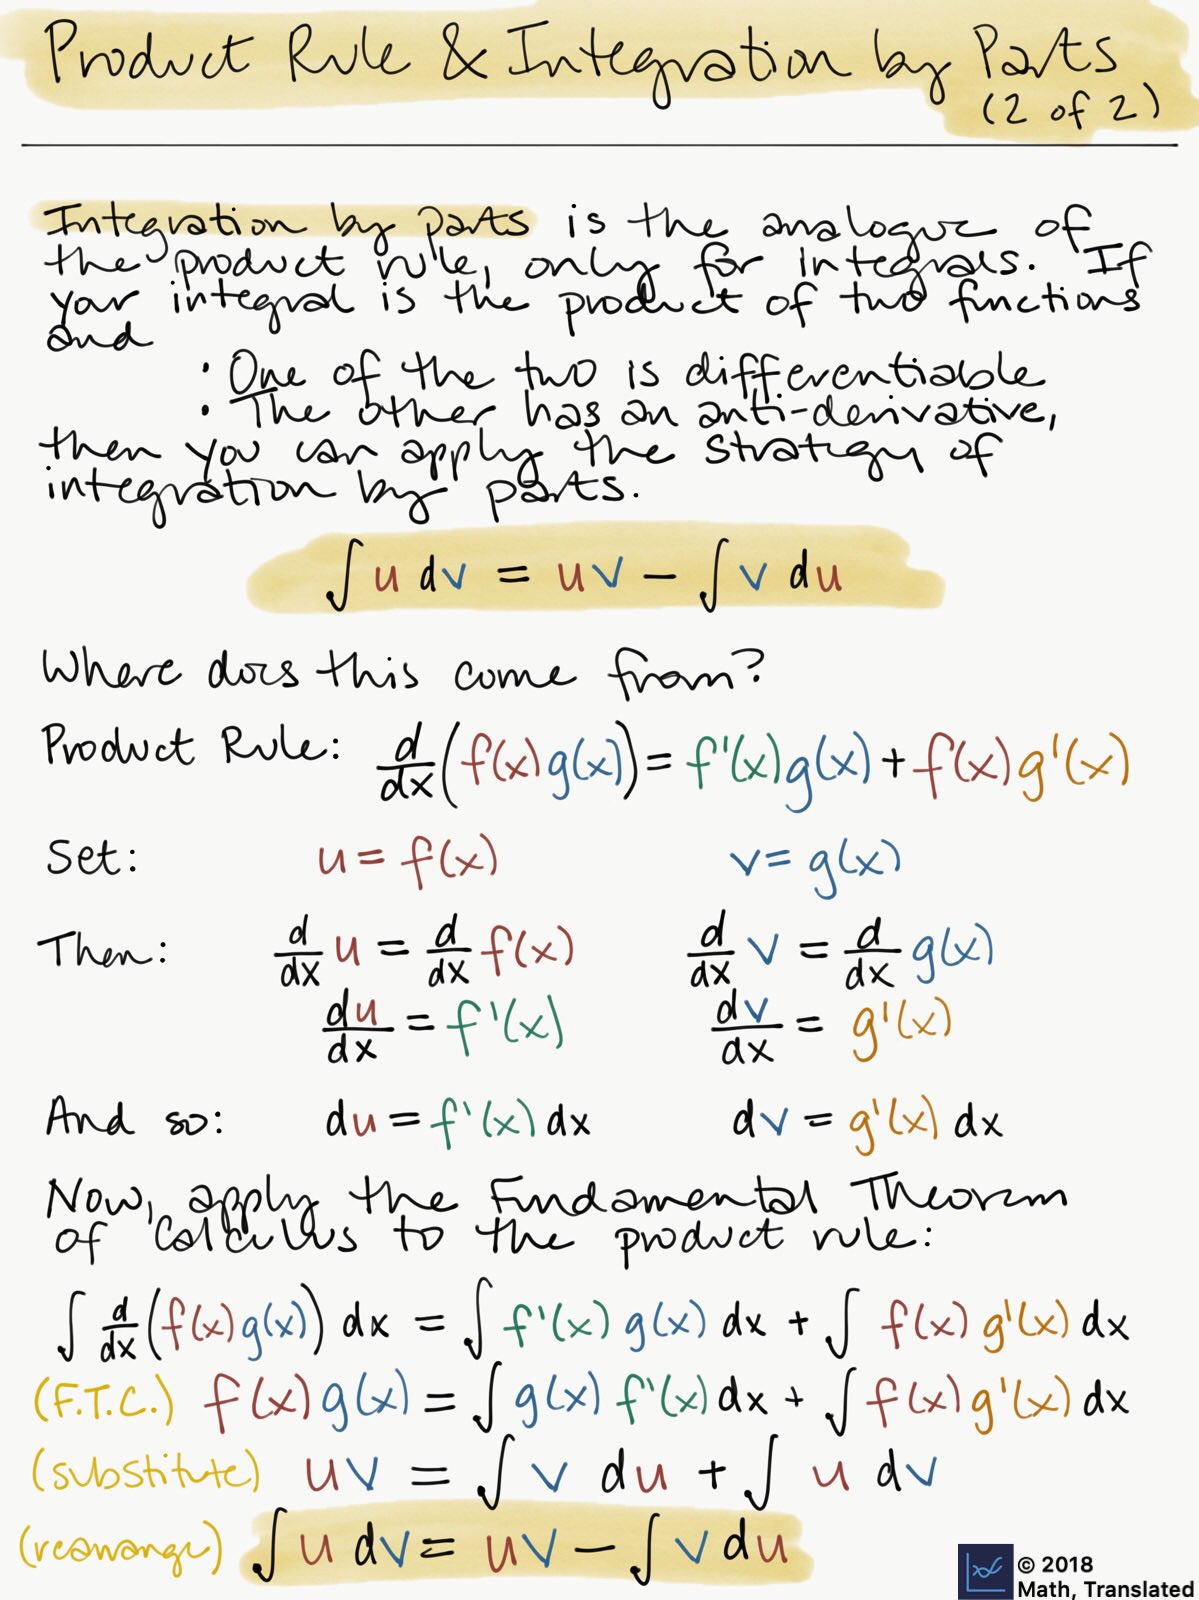 Product Rule & Integration by Parts
(2 of 2)
Integration by parts is the analogue of
the product rule, only for integrals. If
your integral is the product of two functions
and
· One of the two is differentiable
· The other has an anti-derivative,
then you can apply the strategy of
integration by parts.
∫ u dv = uv − ∫ v du
Where does this come from?
Product Rule: d/dx (f(x)g(x)) = f'(x)g(x) + f(x)g'(x)
Set: u = f(x) v = g(x)
Then: d/dx u = d/dx f(x) d/dx v = d/dx g(x)
du/dx = f'(x) dv/dx = g'(x)
And so: du = f'(x) dx dv = g'(x) dx
Now, apply the Fundamental Theorem
of Calculus to the product rule:
∫ d/dx (f(x)g(x)) dx = ∫ f'(x) g(x) dx + ∫ f(x) g'(x) dx
(F.T.C.) f(x) g(x) = ∫ g(x) f'(x) dx + ∫ f(x) g'(x) dx
(substitute) uv = ∫ v du + ∫ u dv
(rearrange) ∫ u dv = uv − ∫ v du
© 2018
Math, Translated